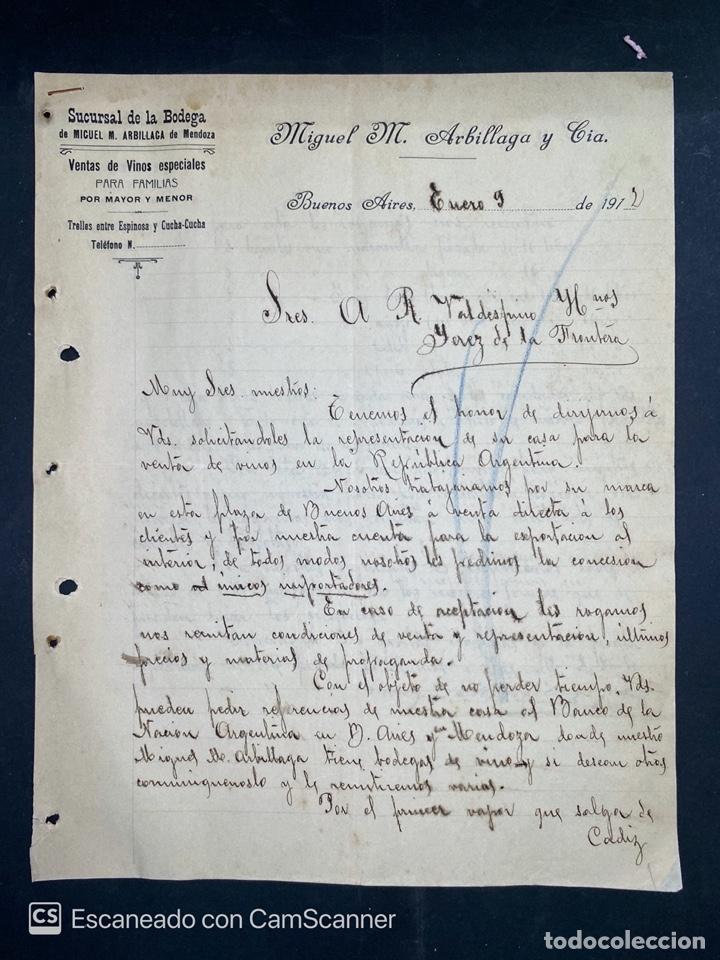 Sucursal de la Bodega
de MIGUEL M. ARBILLAGA de Mendoza
Ventas de Vinos especiales
PARA FAMILIAS
POR MAYOR Y MENOR
Trelles entre Espinosa y Cucha-Cucha
Teléfono N.
Miguel M. Arbillaga y Cia.
Buenos Aires, Enero 9 de 1912
Sres. A R. Valdespino Hnos
Jerez de la Frontera
Muy Sres. nuestros:
Tenemos el honor de dirijirnos á
Vds. solicitandoles la representacion de su casa para la
venta de vinos en la República Argentina.
Nosotros trabajariamos por su marca
en esta plaza de Buenos Aires á venta directa á los
clientes y por nuestra cuenta para la exportacion al
interior, de todos modos nosotros les pedimos la concesion
como únicos importadores.
En caso de aceptacion les rogamos
nos remitan condiciones de venta y representacion, últimos
precios y material de propaganda.
Con el objeto de no perder tiempo, Vds.
pueden pedir referencias de nuestra casa al Banco de la
Nacion Argentina en B. Aires y Mendoza donde nuestro
Miguel M. Arbillaga tiene bodegas de vino y si desean otros
comuniquenoslo y le remitiremos varias.
Por el primer vapor que salga de
Cadiz
CS Escaneado con CamScanner
todocoleccion